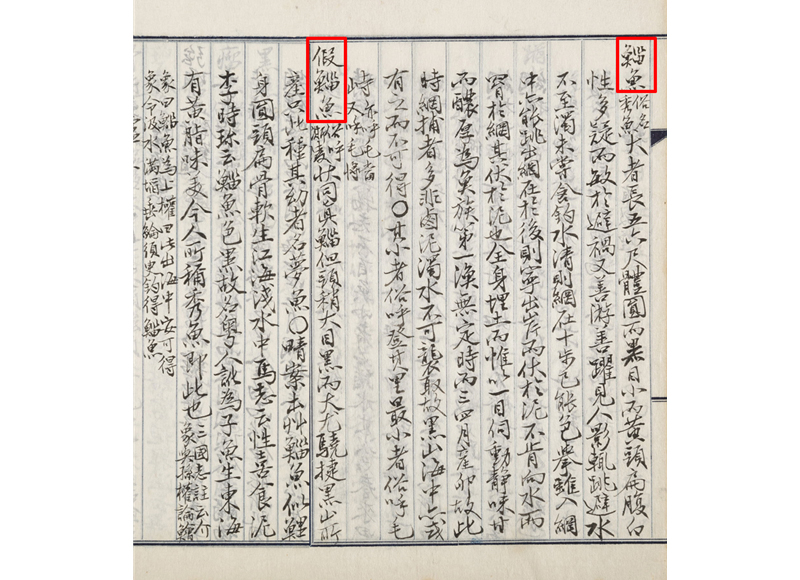 鯔魚 俗名秀魚 大者長五六尺體圓而黑目小而黃頭扁腹白
性多疑而敏於避禍又善游善躍見人影輒跳避水
不至濁未嘗食鈎水清則網在十步已能色擧雖入網
中亦能跳出網在於後則寧出岸而伏於泥不肯向水而
罥於網其伏於泥也全身埋土而惟以一目伺動靜味甘
而醲厚爲魚族第一漁無定時而三四月產卵故此
時網捕者多非鹵泥濁水不可襲取故黑山海中亦或
有之而不可得〇其小者俗呼登其里最小者俗呼毛
峙 亦呼毛當又呼毛將
假鯔魚 俗呼斯陵 狀同眞鯔但頭稍大目黑而大尤驍捷黑山所
產只此種其幼者名夢魚〇晴案本艸鯔魚似鯉
身圓頭扁骨軟生江海淺水中馬志云性喜食泥
李時珍云鯔魚色黑故名粤人訛爲子魚生東海
有黃脂味美今人所稱秀魚卽此也 三國志註云介象與孫權論鱠
象曰鯔魚爲上權曰此出海中安可得
象令汲水滿堛垂綸須臾釣得鯔魚